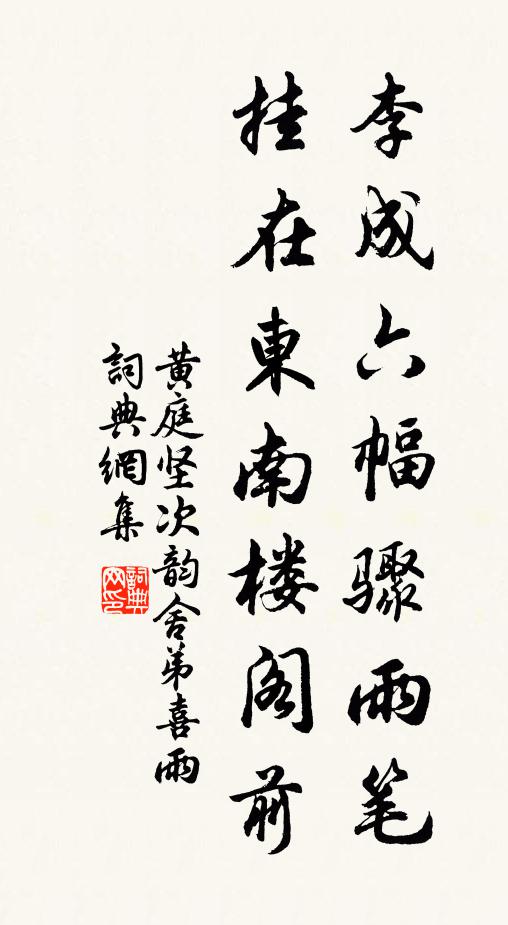 李成六幅骤雨笔
挂在東南楼阁前
黄庭坚次韵舍弟喜雨
詞典網集
詞典网印